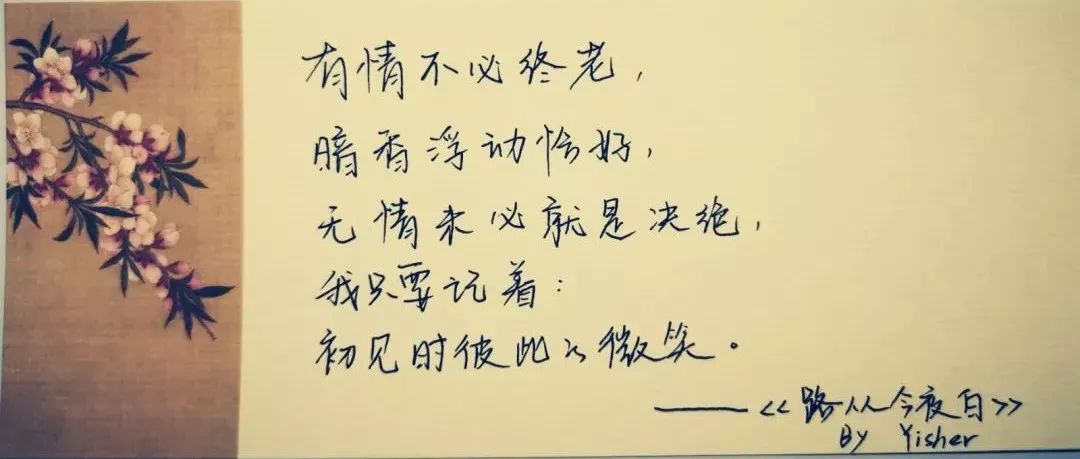 有情不必终老，
暗香浮动恰好，
无情未必就是决绝，
我只要记着：
初见时彼此的微笑。
——《路从今夜白》
By Yisher